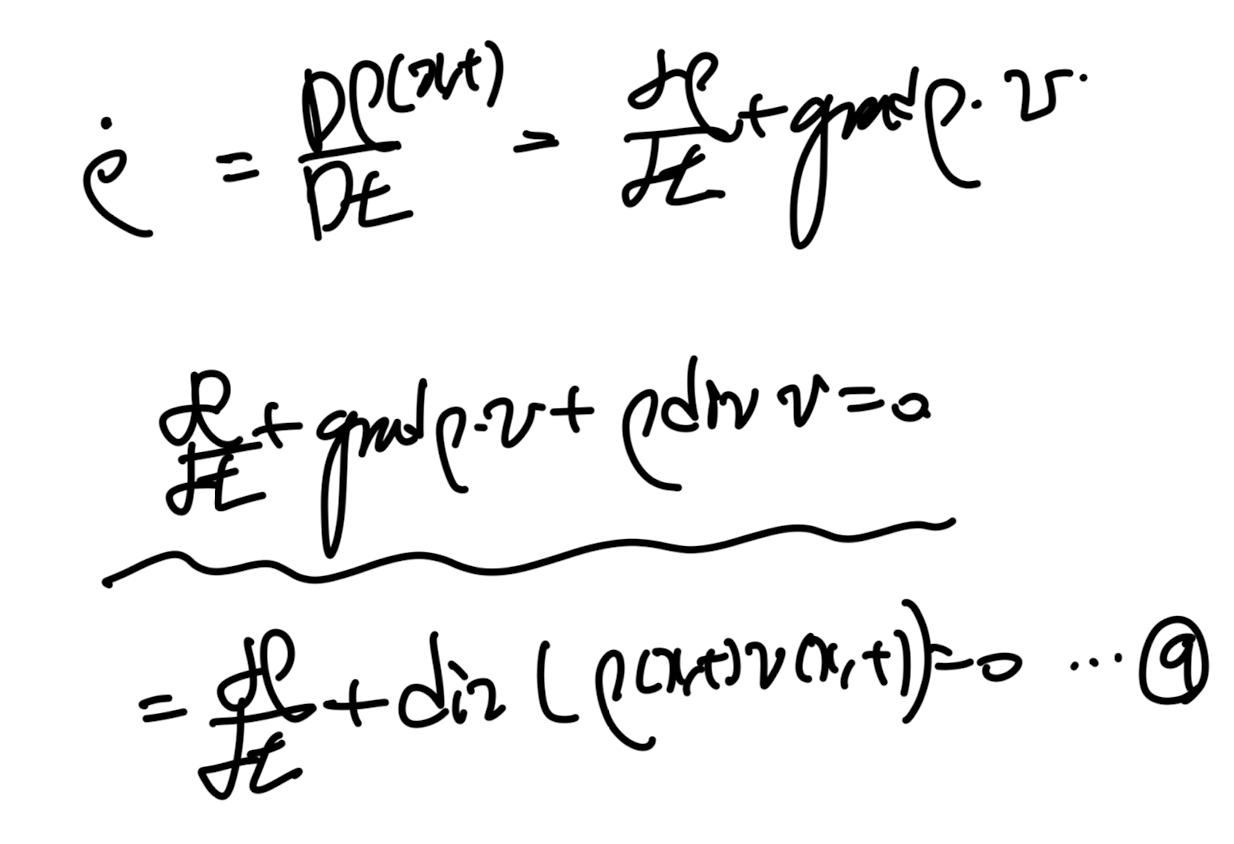 ρ̇ = Dρ(x,t)/Dt = ∂ρ/∂t + grad ρ · v.
∂ρ/∂t + grad ρ · v + ρ div v = 0
= ∂ρ/∂t + div (ρ(x,t) v(x,t)) = 0 ... ⑨